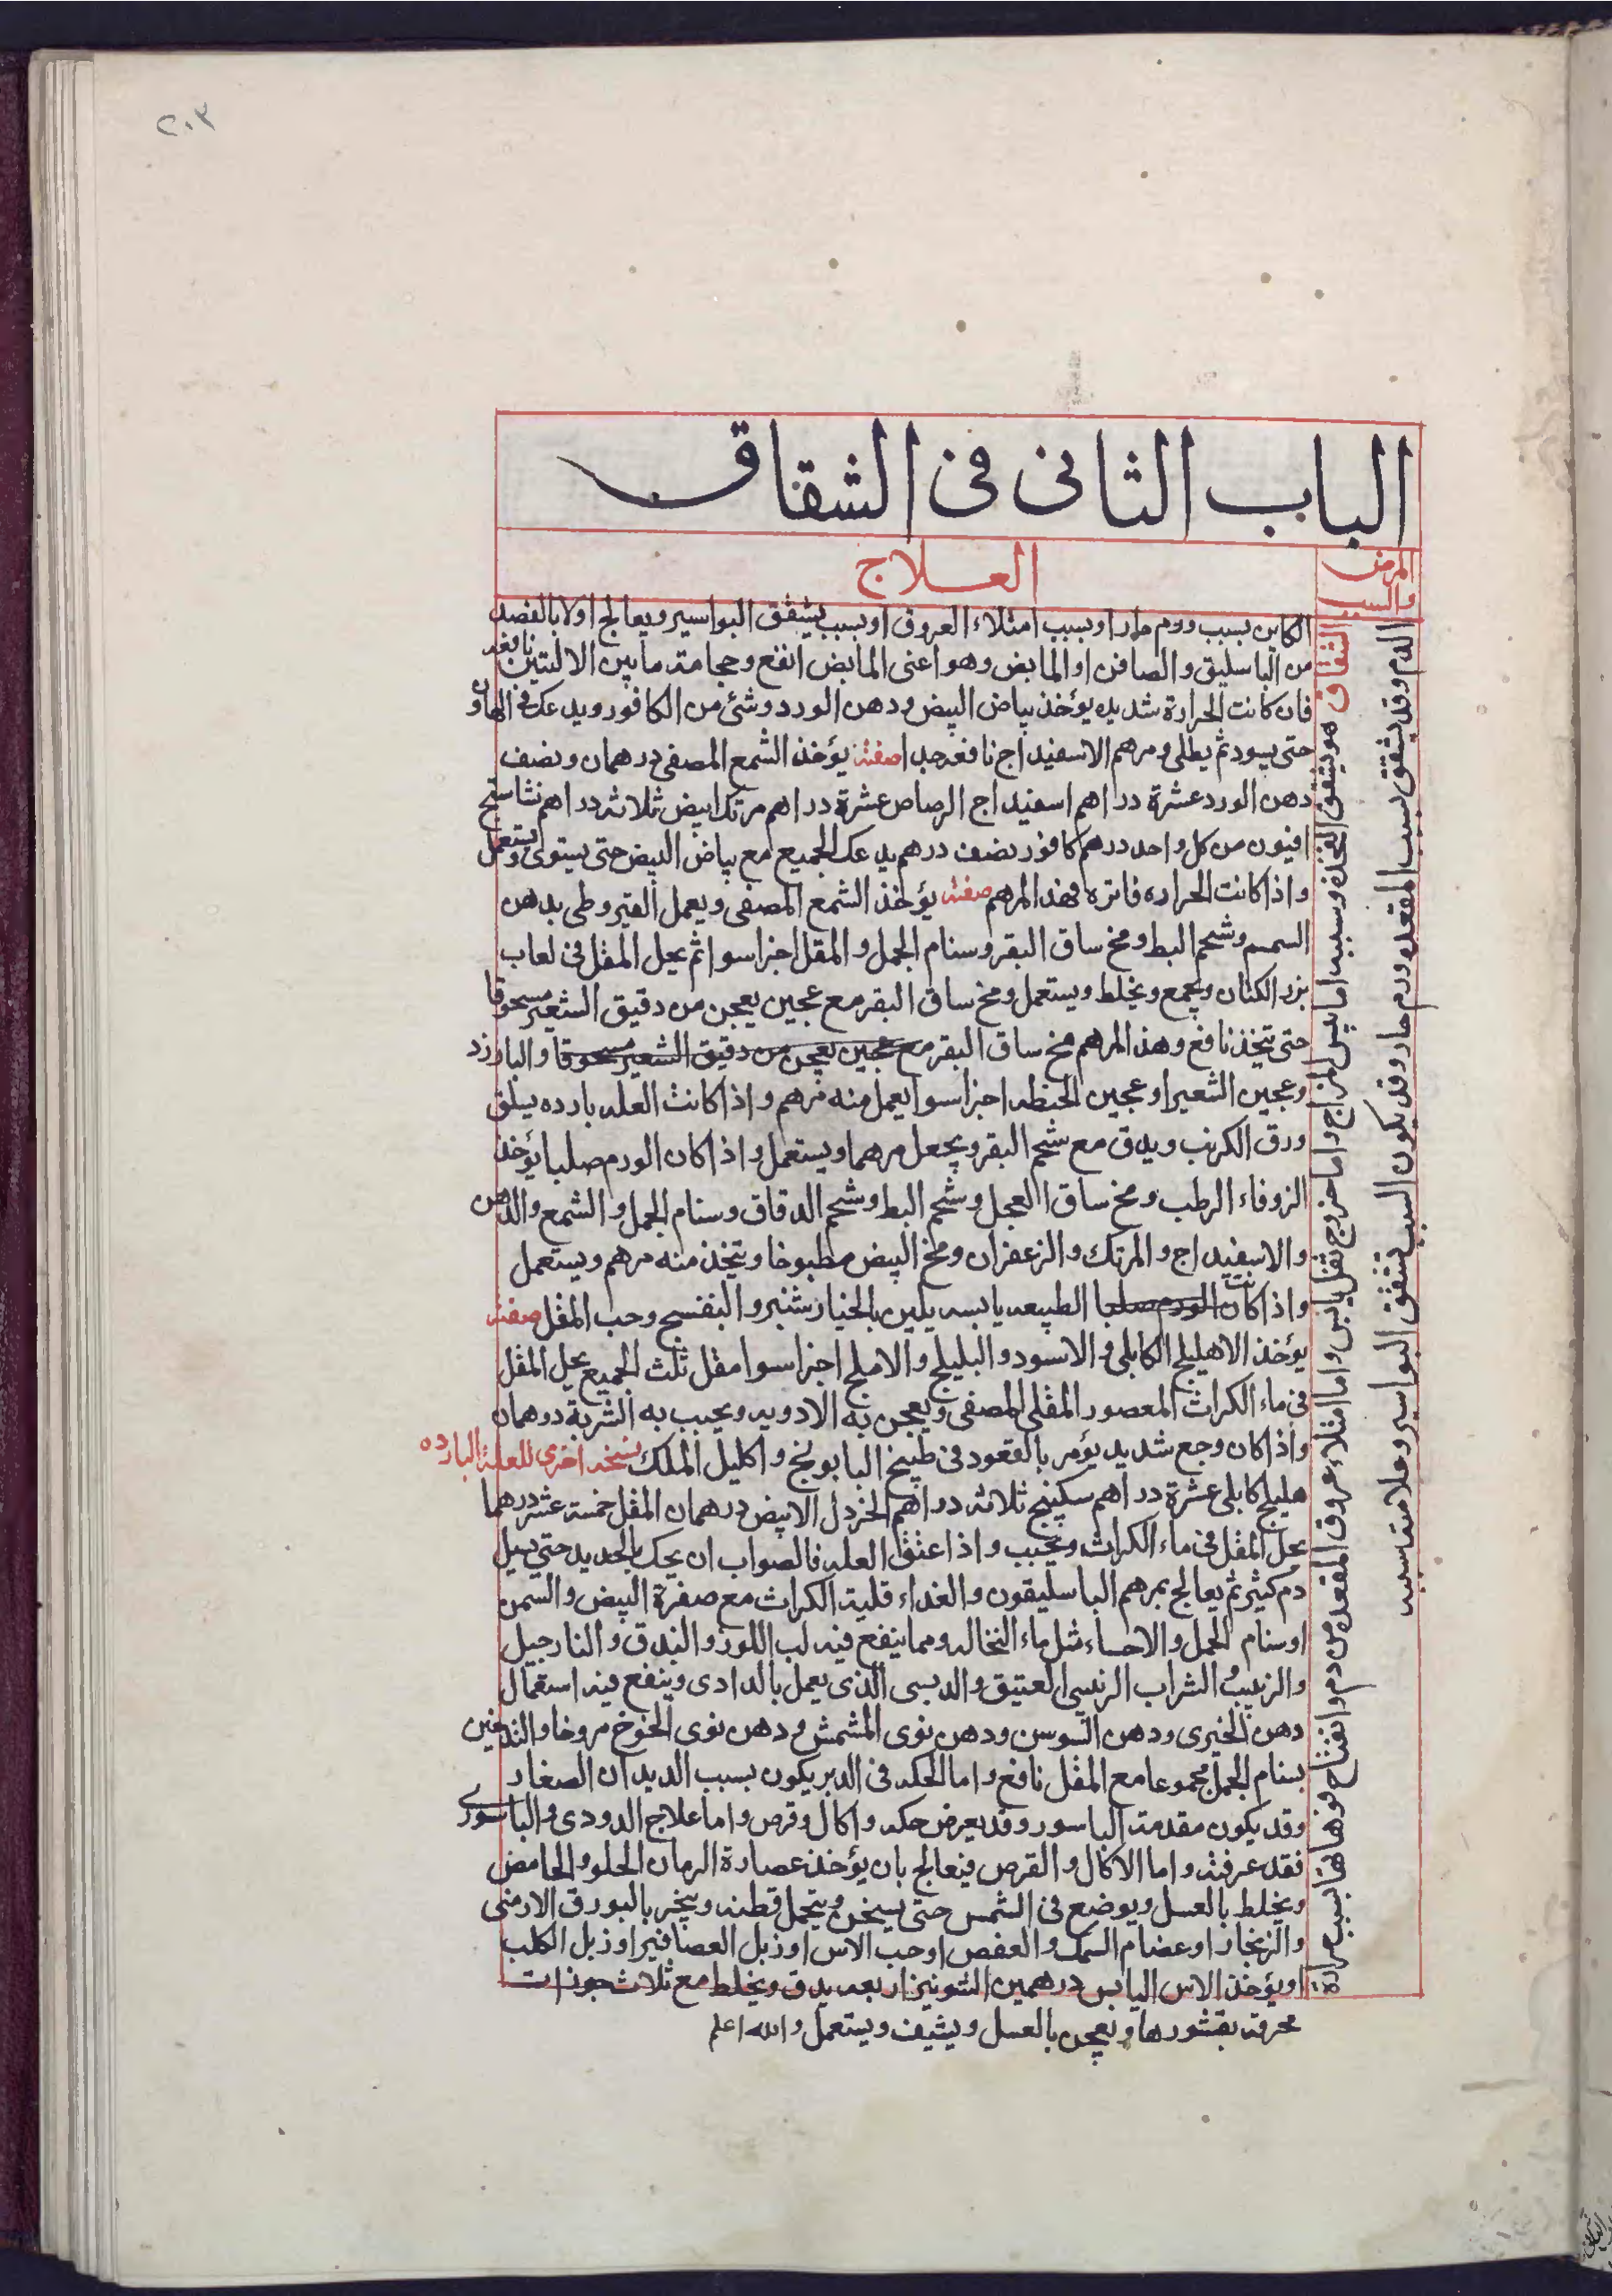 ٢٠٣
الباب الثانى فى الشقاق
المرض
والسبب
العلاج
الشقاق هو يشقق المقعدة وسببه اما يبس المزاج واما خروج ثفل يابس واما امتلاء عروق المقعده من دم وانفتاح فوهاتها بسبب حرارة
الدم وقد يشقق بسبب المقعده ورم حار وقد يكون السبب تشقق البواسير وعلامته سببه
الكاين بسبب ورم حار او بسبب امتلاء العروق او بسبب يشقق البواسير ويعالج اولا بالفصد
من الباسليق والصافن او المابض وهو اعنى المابض انفع وحجامة ما بين الاليتين نافعه
فان كانت الحرارة شديده يؤخذ بياض البيض ودهن الورد وشئ من الكافور ويدعك فى الهاون
حتى يسود ثم يطلى ومرهم الاسفيداج نافع جدا صفته يؤخذ الشمع المصفى درهمان ونصف
دهن الورد عشرة دراهم اسفيداج الرصاص عشرة دراهم مرتك ابيض ثلاثه دراهم نشاستج
افيون من كل واحد درهم كافور نصف درهم يدعك الجميع مع بياض البيض حتى يستوى ويستعمل
واذا كانت الحراره فاتره فهذا المرهم صفته يؤخذ الشمع المصفى ويعمل القيروطى بدهن
السمسم وشحم البط ومخ ساق البقر وسنام الجمل والمقل اجزاسوا ثم يحل المقل فى لعاب
بزر الكتان ويجمع ويخلط ويستعمل ومخ ساق البقر مع عجين يعجن من دقيق الشعير مسحوقا
حتى يتخذ نافع وهذا المرهم مخ ساق البقر مع عجين يعجن من دقيق الشعير مسحوقا والبارزد
وعجين الشعير او عجين الحنطه اجزاسوا يعمل منه مرهم واذا كانت العله بارده يسلق
ورق الكرنب ويدق مع شحم البقر ويجعل مرهما ويستعمل واذا كان الورم صلبا يؤخذ
الزوفاء الرطب ومخ ساق العجل وشحم البط وشحم الدقاق وسنام الجمل والشمع والدهن
والاسفيداج والمرتك والزعفران ومخ البيض مطبوخا ويتخذ منه مرهم ويستعمل
واذا كانت الورم صلبا الطبيعه يابسه يلين بالخيارشنبر والبنفسج وحب المقل صفته
يؤخذ الاهليلج الكابلى والاسود والبليلج والاملج اجزاسوا مقل ثلث الجميع يحل المقل
فى ماء الكراث المعصور المقلى المصفى ويعجن به الادويه ويحبب به الشربة درهمان
واذا كان وجع شديد يؤمر بالقعود فى طبيخ البابونج واكليل الملك نسخه اخرى للعلة البارده
هليلج كابلى عشرة دراهم سكبينج ثلاثه دراهم الخردل الابيض درهمان المقل خمسة عشر درهما
يحل المقل فى ماء الكراث ويحبب واذا عتق العله فالصواب ان يحك بالحديد حتى يسيل
دم كثير ثم يعالج بمرهم الباسليقون والغداء قلية الكراث مع صفرة البيض والسمن
او سنام الجمل والاحساء مثل ماء النخاله ومما ينفع فيه لب اللوز والبندق والنارجيل
والزبيب الشراب الزبيبى العتيق والدبسى الذى يعمل بالدادى وينفع فيه استعمال
دهن الخيرى ودهن السوسن ودهن نوى المشمش ودهن نوى الخوخ مروخا والتدهين
بسنام الجمل مجموعا مع المقل نافع واما الحكه فى الدبر يكون بسبب الديدان الصغار
وقد يكون مقدمة الباسور وقد يعرض حكه واكال وقرص واما علاج الدودى والباسورى
فقد عرفته واما الاكال والقرص فيعالج بان يؤخذ عصارة الرمان الحلو والحامض
ويخلط بالعسل ويوضع فى الشمس حتى يسخن ويتحمل قطنه ويبخر بالبورق الارمنى
والزنجار او عضام السمك والعفص او حب الاس او زبل العصافير او زبل الكلب
او يؤخذ الاس اليابس درهمين الشونيز اربعه يدق ويخلط مع ثلاث جوزات
محرقه بقشورها ويعجن بالعسل ويشيف ويستعمل والله اعلم